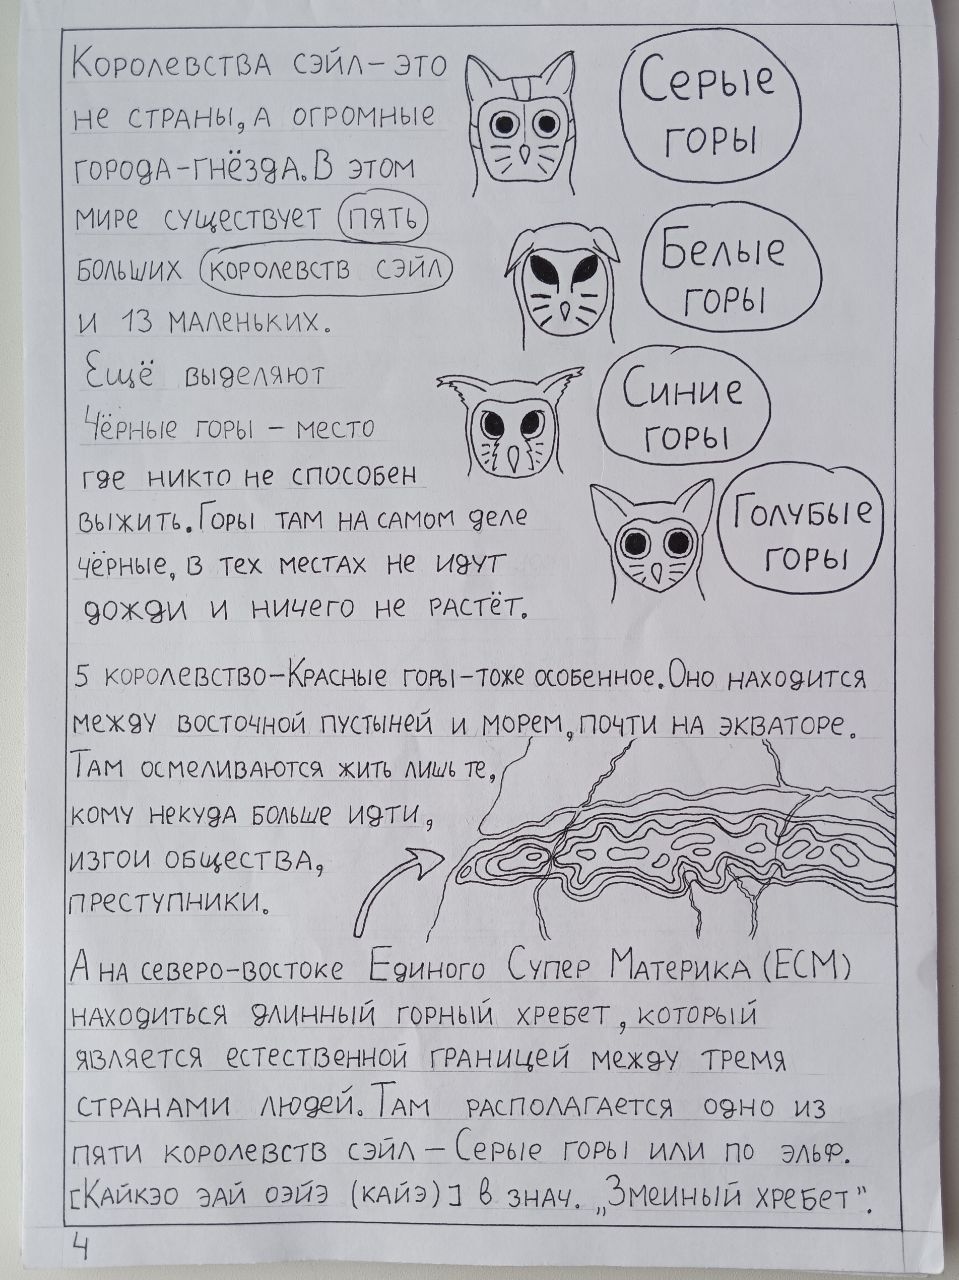 Королевства сэйл – это
не страны, а огромные
города-гнёзда. В этом
мире существует пять
больших королевств сэйл
и 13 маленьких.
Ещё выделяют
Чёрные горы – место
где никто не способен
выжить. Горы там на самом деле
чёрные, в тех местах не идут
дожди и ничего не растёт.
Серые
горы
Белые
горы
Синие
горы
Голубые
горы
5 королевство – Красные горы – тоже особенное. Оно находится
между восточной пустыней и морем, почти на экваторе.
Там осмеливаются жить лишь те,
кому некуда больше идти,
изгои общества,
преступники.
А на северо-востоке Единого Супер Материка (ЕСМ)
находиться длинный горный хребет, который
является естественной границей между тремя
странами людей. Там располагается одно из
пяти королевств сэйл – Серые горы или по эльф.
[Кайкэо эай оэйэ (кайэ)] в знач. „Змеиный хребет".
4